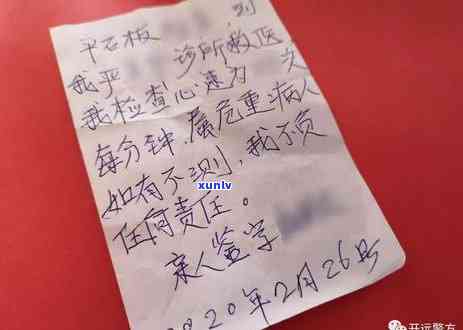 平石板 到
我平 诊所救医
我检查心速为 次
每分钟,属危重病人
如有不测,我不负
任何责任。
亲人签字
2020年2月26号
xunlv
开远警方